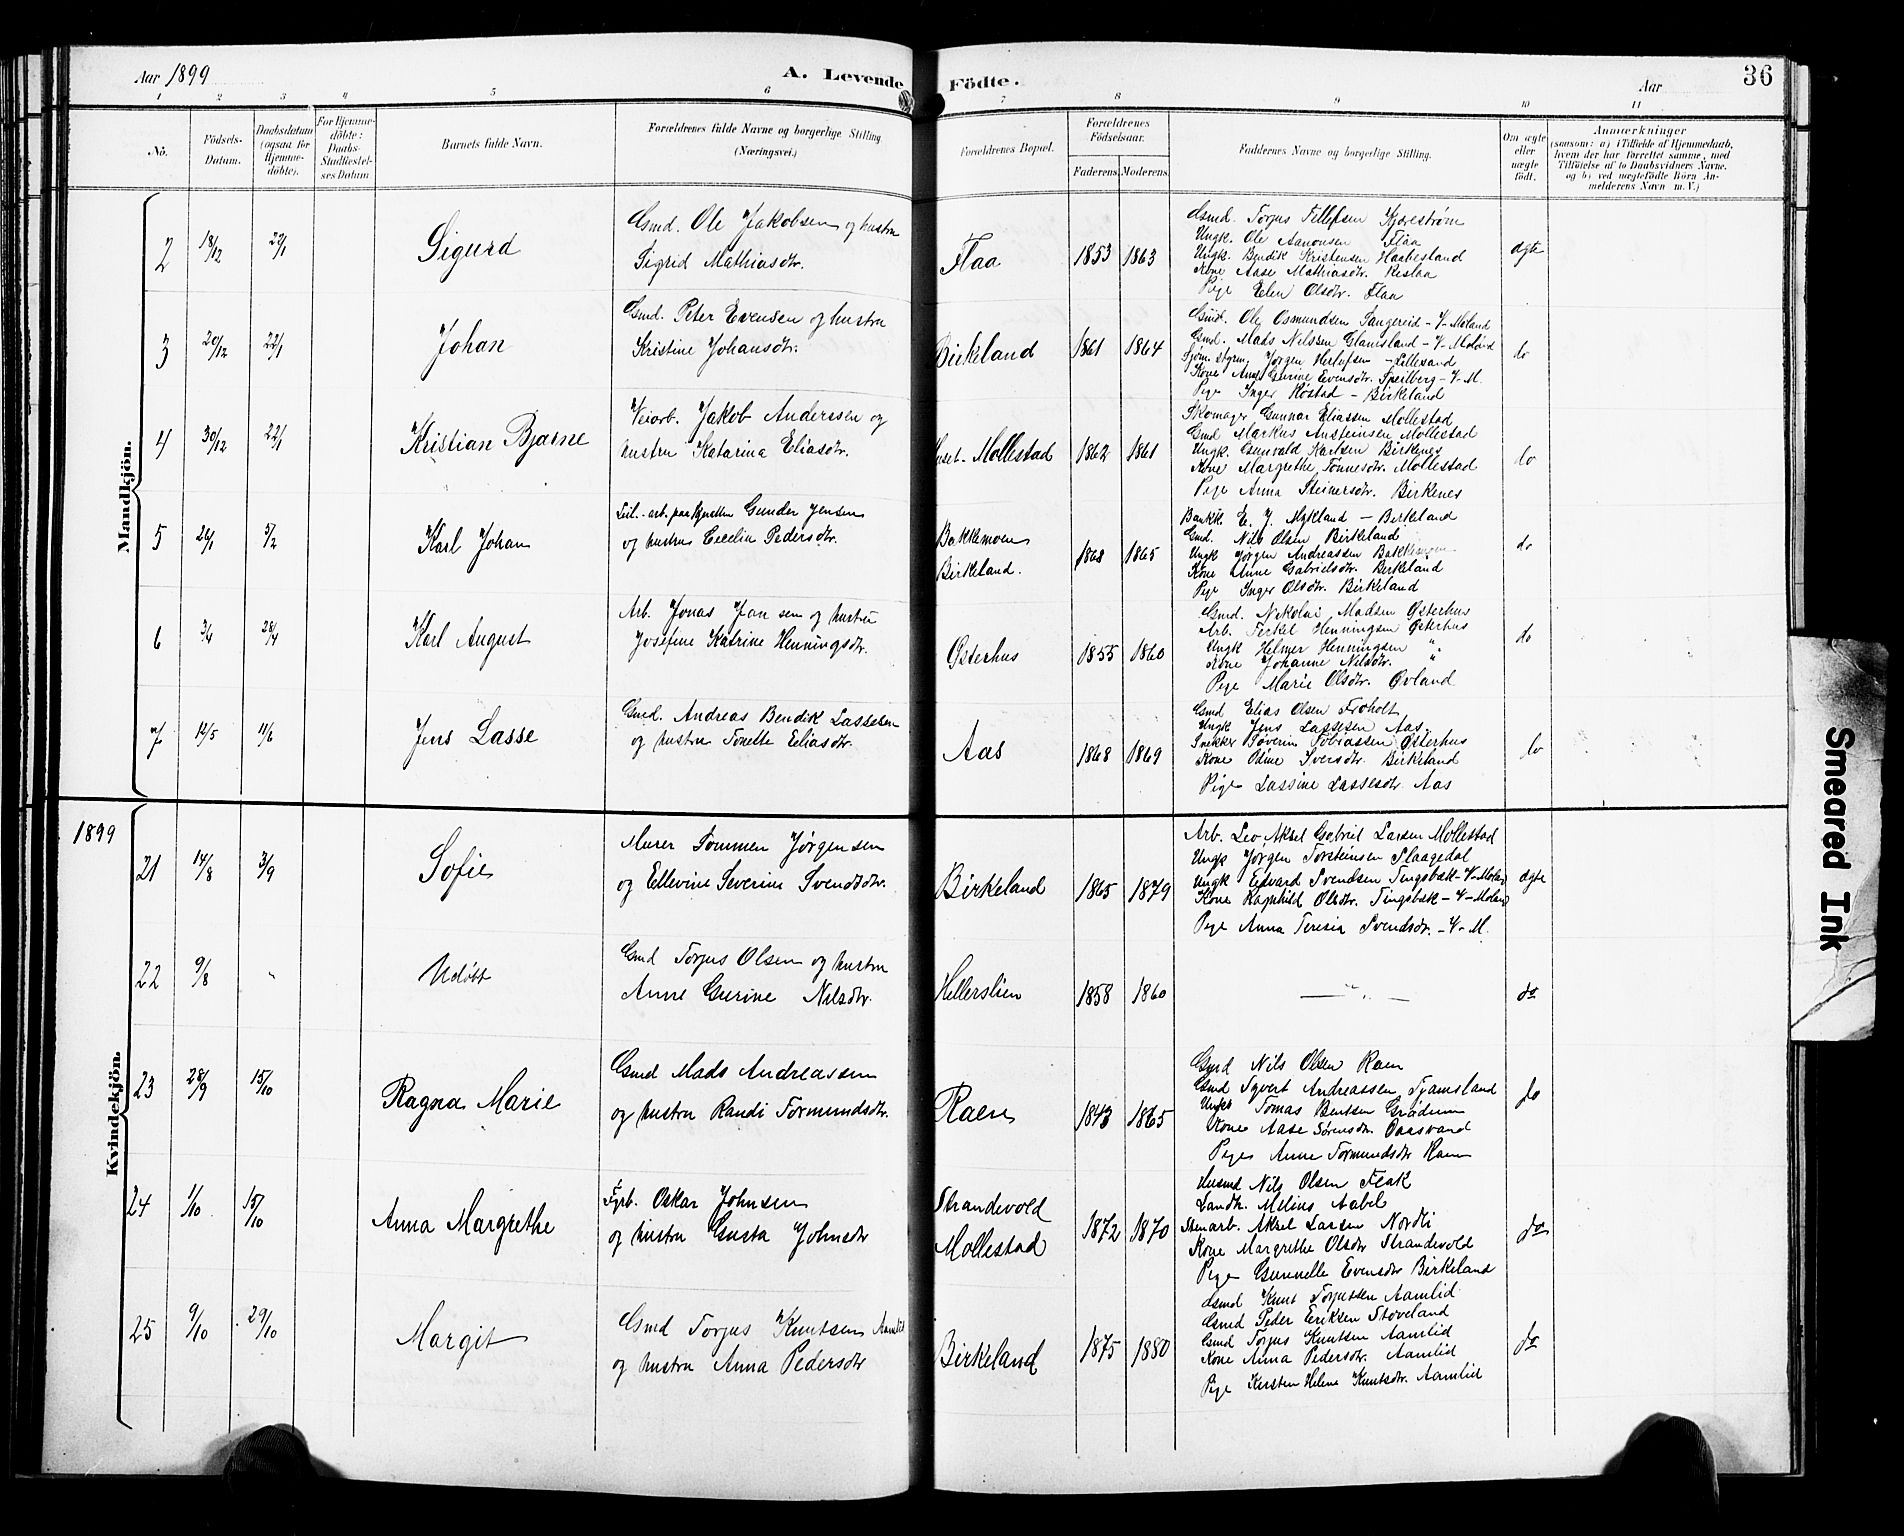 Aar 1899
A. Levende Födte.
Aar
36
1 2 3 4 5 6 7 8 9 10 11
No.
Födsels-Datum.
Daabsdatum (ogsaa for Hjemme-döbte).
For Hjemme-döbte: Daabs-Stadfæstel-ses Datum
Barnets fulde Navn.
Forældrenes fulde Navne og borgerlige Stilling (Næringsvei.)
Forældrenes Bopæl.
Forældrenes Födselsaar.
Faderens Moderens
Faddernes Navne og borgerlige Stilling.
Om ægte eller uægte födt.
Anmærkninger
(saasom: a) i Tilfælde af Hjemmedaab, hvem der har forrettet samme, med Tilföielse af to Daabsvidners Navne. og b) ved uægtefödte Börn An-melderens Navn m. V.)
Mandkjön.
2 18/12 22/1 Sigurd
Gmd. Ole Jakobsen og hustru
Sigrid Mathiasdtr.
Flaa 1853 1863
Gmd. Torjus Tellefsen Kjærestrøm
Ungk. Ole Aanonsen Flaa
Ungk. Bendik Kristensen Haabesland
Kone Aase Mathiasdtr. Reslaa
Pige Elen Olsdtr. Flaa
ægte
3 20/12 22/1 Johan
Gmd. Peter Evensen og hustru
Kristine Johansdtr.
Birkeland 1861 1864
Gmd. Ole Osmundsen Tangereid - V-Moland
Gmd. Mads Nilssen Glamsland - V-Moland
Jørgen Herlofsen - Lillesand
Kone Gurine Evensdtr. Speilberg - V-M.
Pige Inger Røstad - Birkeland
do
4 30/12 22/1 Kristian Bjarne
Veiarb. Jakob Anderssen og
hustru Katarina Eliasdtr.
Mollestad 1862 1861
Skomager Gunnar Eliassen Mollestad
Gmd Markus Ansteinsen Mollestad
Ungk. Gunvald Karlsen Birkenes
Kone Margrethe Tønnesdtr. Mollestad
Pige Anna Steinersdtr. Birkenes
do
5 26/1 5/2 Karl Johan
Gunder Jensen
og hustru Cecelia Pedersdtr.
Bakkemoen
Birkeland. 1868 1865
Bankk. E. J. Mykland - Birkeland
Gmd. Nils Olsen Birkeland
Ungk Jørgen Andreassen Bakkemoen
Kone Anne Gabrielsdtr. Birkeland
Pige Inger Olsdtr. Birkeland
do
6 3/4 28/4 Karl August
Arb. Jonas Jansen og hustru
Josefine Katrine Henningsdtr.
Østerhus 1855 1860
Gmd. Nikolai Madsen Østerhus
Arb. Terkel Henningsen Østerhus
Ungk Helmer Henningsen "
Kone Johanne Nilsdtr. "
Pige Marie Olsdtr. Øvland
do
7 14/5 11/6 Jens Lasse
Gmd. Andreas Bendik Lassesen
og hustru Tonette Eliasdtr.
Aas 1868 1869
Gmd Elias Olsen Froholt
Ungk Jens Lassesen Aas.
Snekker Søverin Tobiassen Østerhus
Kone Odine Iversdtr. Birkeland
Pige Lassine Lassesdtr. Aas
do
1899
Kvindekjön.
21 14/8 3/9 Sofie
Murer Tommen Jørgensen
og Ellevine Severine Svendsdtr.
Birkeland 1865 1879
Arb. Aksel Gabriel Larsen Mollestad
Ungk Jørgen Torsteinsen Plaagedal
Ungk Edvard Svendsen Tingsbæk - V-Moland
Kone Ragnhild Olsdtr. Tingsbæk - V-Moland
Pige Anna Teresia Svendsdtr. - V-M.
ægte
22 9/8 " Udøbt
Gmd Torjus Olsen og hustru
Anne Gurine Nilsdtr.
Hellerslien 1858 1860
— " —
do
23 28/9 15/10 Ragna Marie
Gmd Mads Andreassen
og hustru Randi Tormundsdtr.
Raen 1843 1865
Gmd Nils Olsen Raen
Gmd Sgvert Andreassen Tjamsland
Ungk Tomas Bentsen Grødum
Kone Aase Sørensdtr.
Pige Anne Tormundsdtr Raen
do
24 1/10 15/10 Anna Margrethe
Fyrb. Oskar Johnsen
og hustru Gusta Johnsdtr
Strandevold
Mollestad 1872 1870
Husmd Nils Olsen Flak
Landh. Melius Aabel
Stenarb. Aksel Larsen Nordli
Kone Margrethe Olsdtr Strandevold
Pige Gunnelle Evensdtr Birkeland
do
25 9/10 29/10 Margit
Gmd Torjus Knutsen Aamlid
og hustru Anna Pedersdtr
Birkeland 1875 1880
Gmd Knut Torjussen Aamlid
Gmd Peder Eriksen Støveland
Gmd Torjus Knutsen Aamlid
Kone Anna Pedersdtr. Aamlid
Pige Kirsten Helene Knutsdtr. Aamlid
do
Smeared Ink